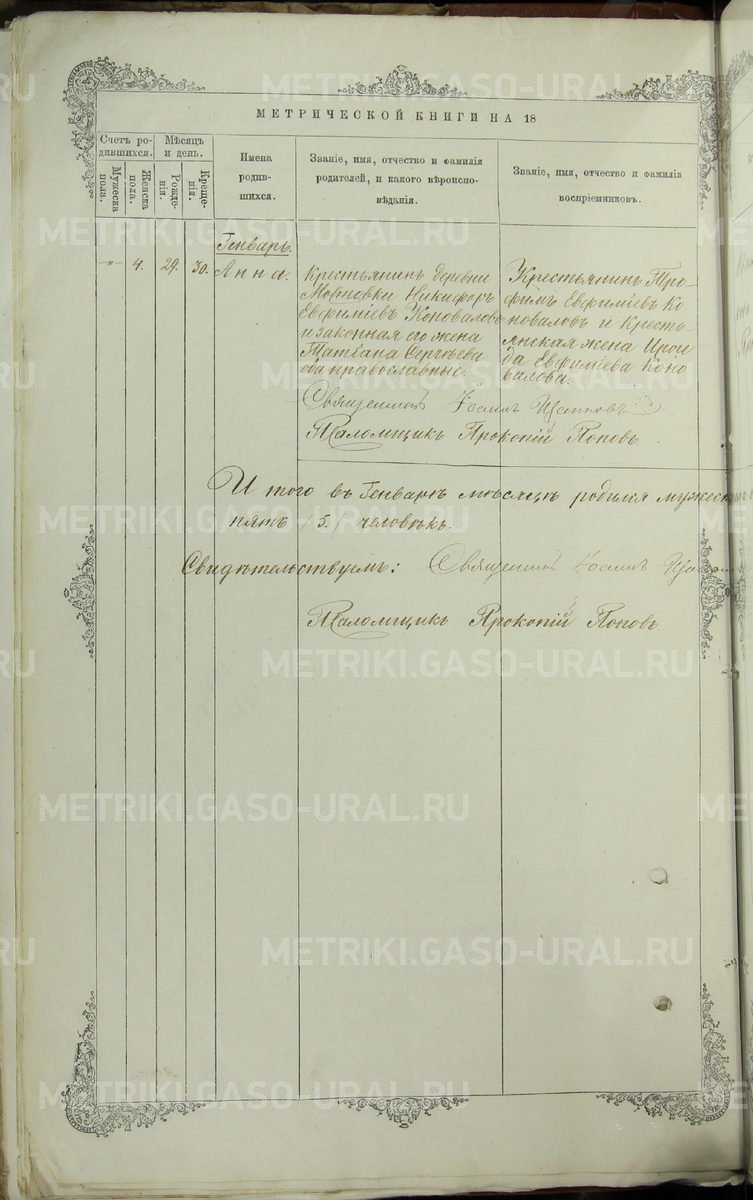 МЕТРИЧЕСКОЙ КНИГИ НА 18
Счетъ ро-
дившихся.
Мужеска
пола.
Женска
пола.
Мѣсяцъ
и день.
Рожде-
нія.
Креще-
нія.
Имена
родив-
шихся.
Званіе, имя, отчество и фамилія
родителей, и какого вѣроиспо-
вѣданія.
Званіе, имя, отчество и фамилія
воспріемниковъ.
Генварь.
-"- 4. 29. 30. Анна.
Крестьянинъ деревни
Никифоръ
Евфиміевъ Коноваловъ
и законная его жена
Татіана Сергѣева
оба православные.
Крестьянинъ Тро-
фимъ Евфиміевъ Ко
новаловъ и Кресть-
янская жена Ирои
да Евфиміева Коно
валова.
Священникъ Іоаннъ
Псаломщикъ Прокопій Поповъ
И того въ Генварѣ мѣсяцѣ родился
пять /5./ человѣкъ.
Свидѣтельствуемъ: Священникъ Іоаннъ
Псаломщикъ Прокопій Поповъ
METRIKI.GASO-URAL.RU